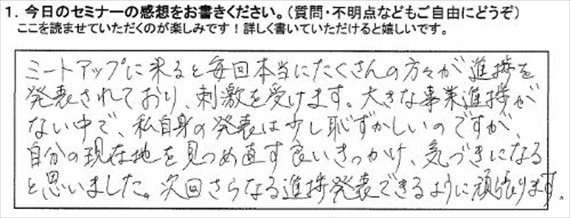 1. 今日のセミナーの感想をお書きください。（質問・不明点などもご自由にどうぞ）
ここを読ませていただくのが楽しみです！詳しく書いていただけると嬉しいです。
ミートアップに来ると毎回本当にたくさんの方々が進捗を
発表されており、刺激を受けます。大きな事業進捗が
ない中で、私自身の発表は少し恥ずかしいのですが、
自分の現在地を見つめ直す良いきっかけ、気づきになる
と思いました。次回さらなる進捗発表できるように頑張ります。